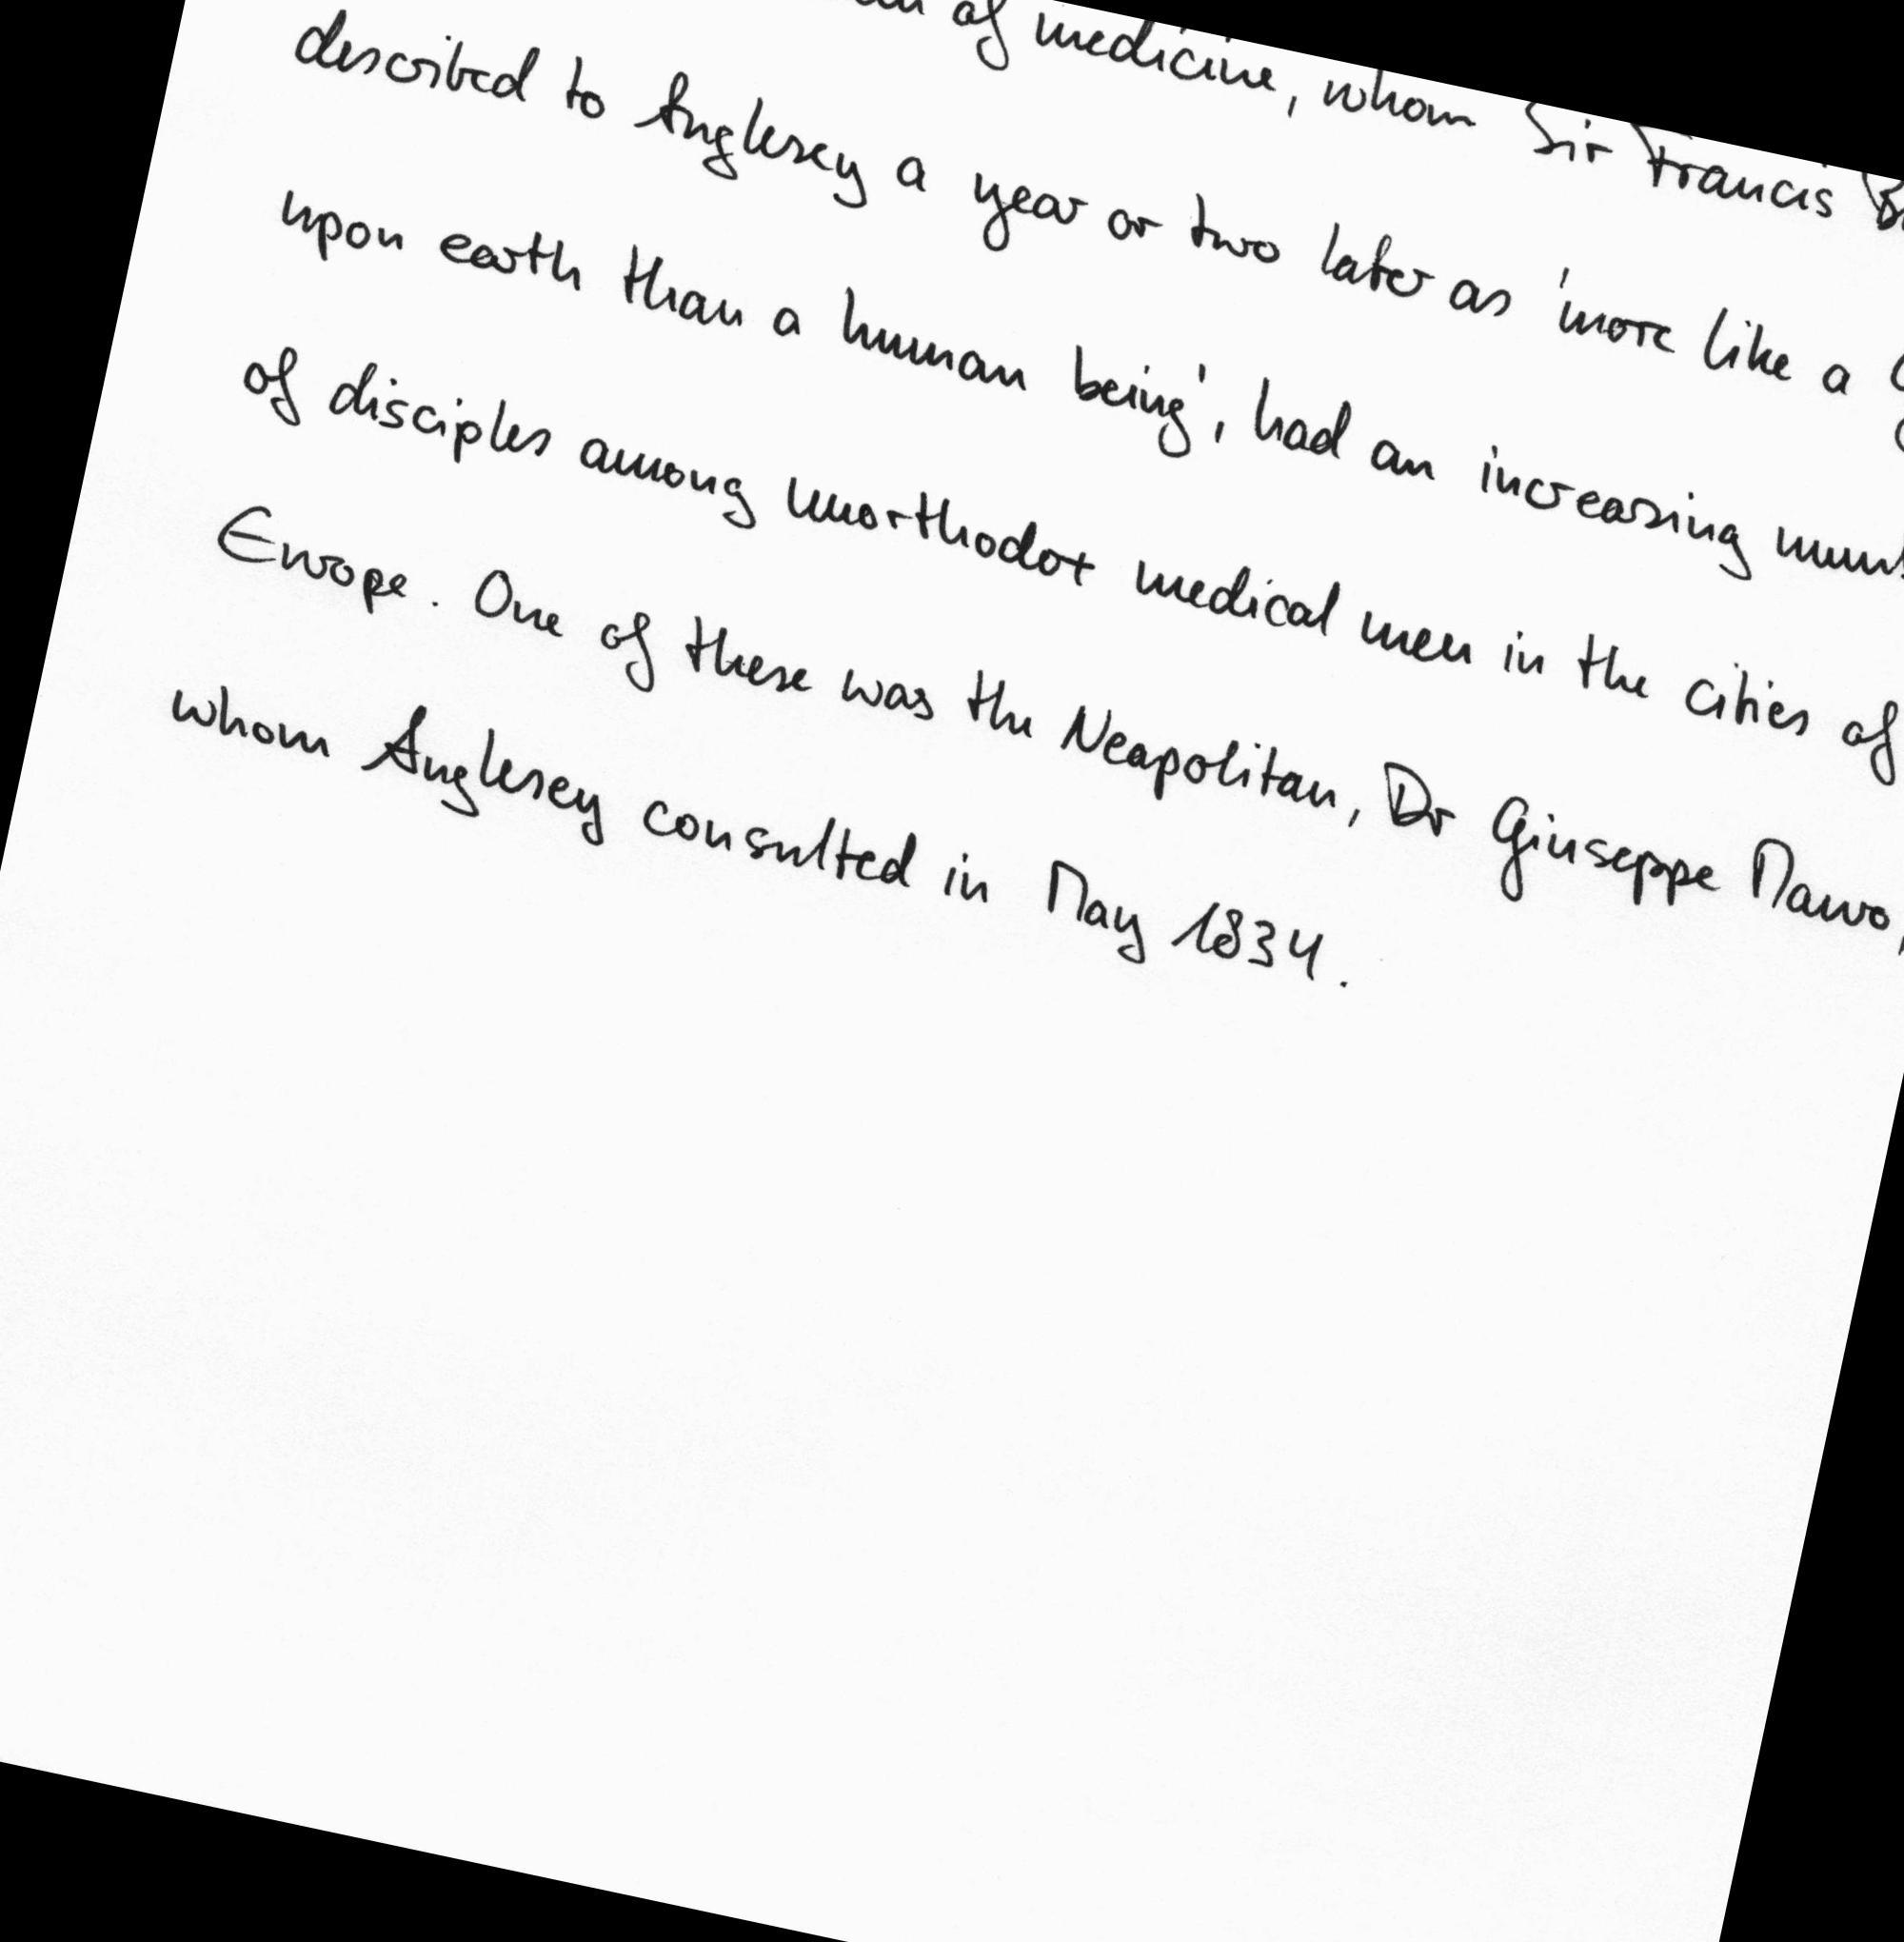 of medicine, whom Sir Francis
described to Anglesey a year or two later as 'more like a
upon earth than a human being', had an increasing
of disciples among unorthodox medical men in the cities of
Europe. One of these was the Neapolitan, Dr Giuseppe Mauro,
whom Anglesey consulted in May 1834.